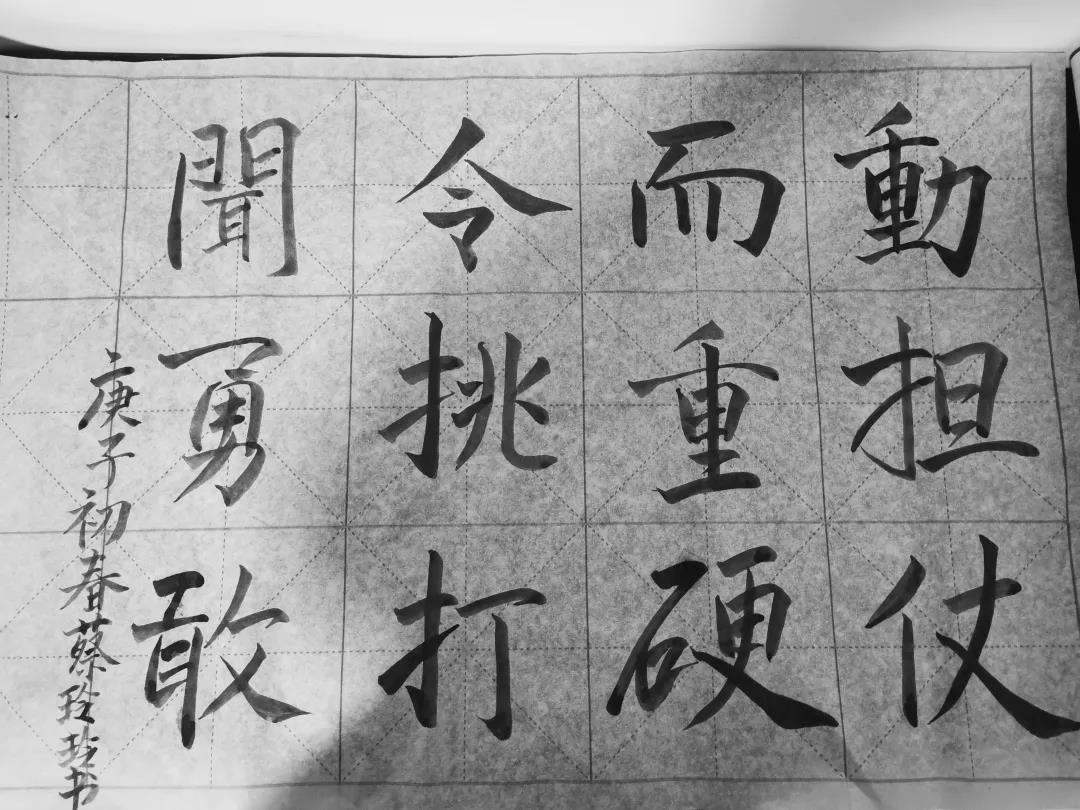 動担仗
而重硬
令挑打
聞勇敢
庚子初春蔡玲玲书